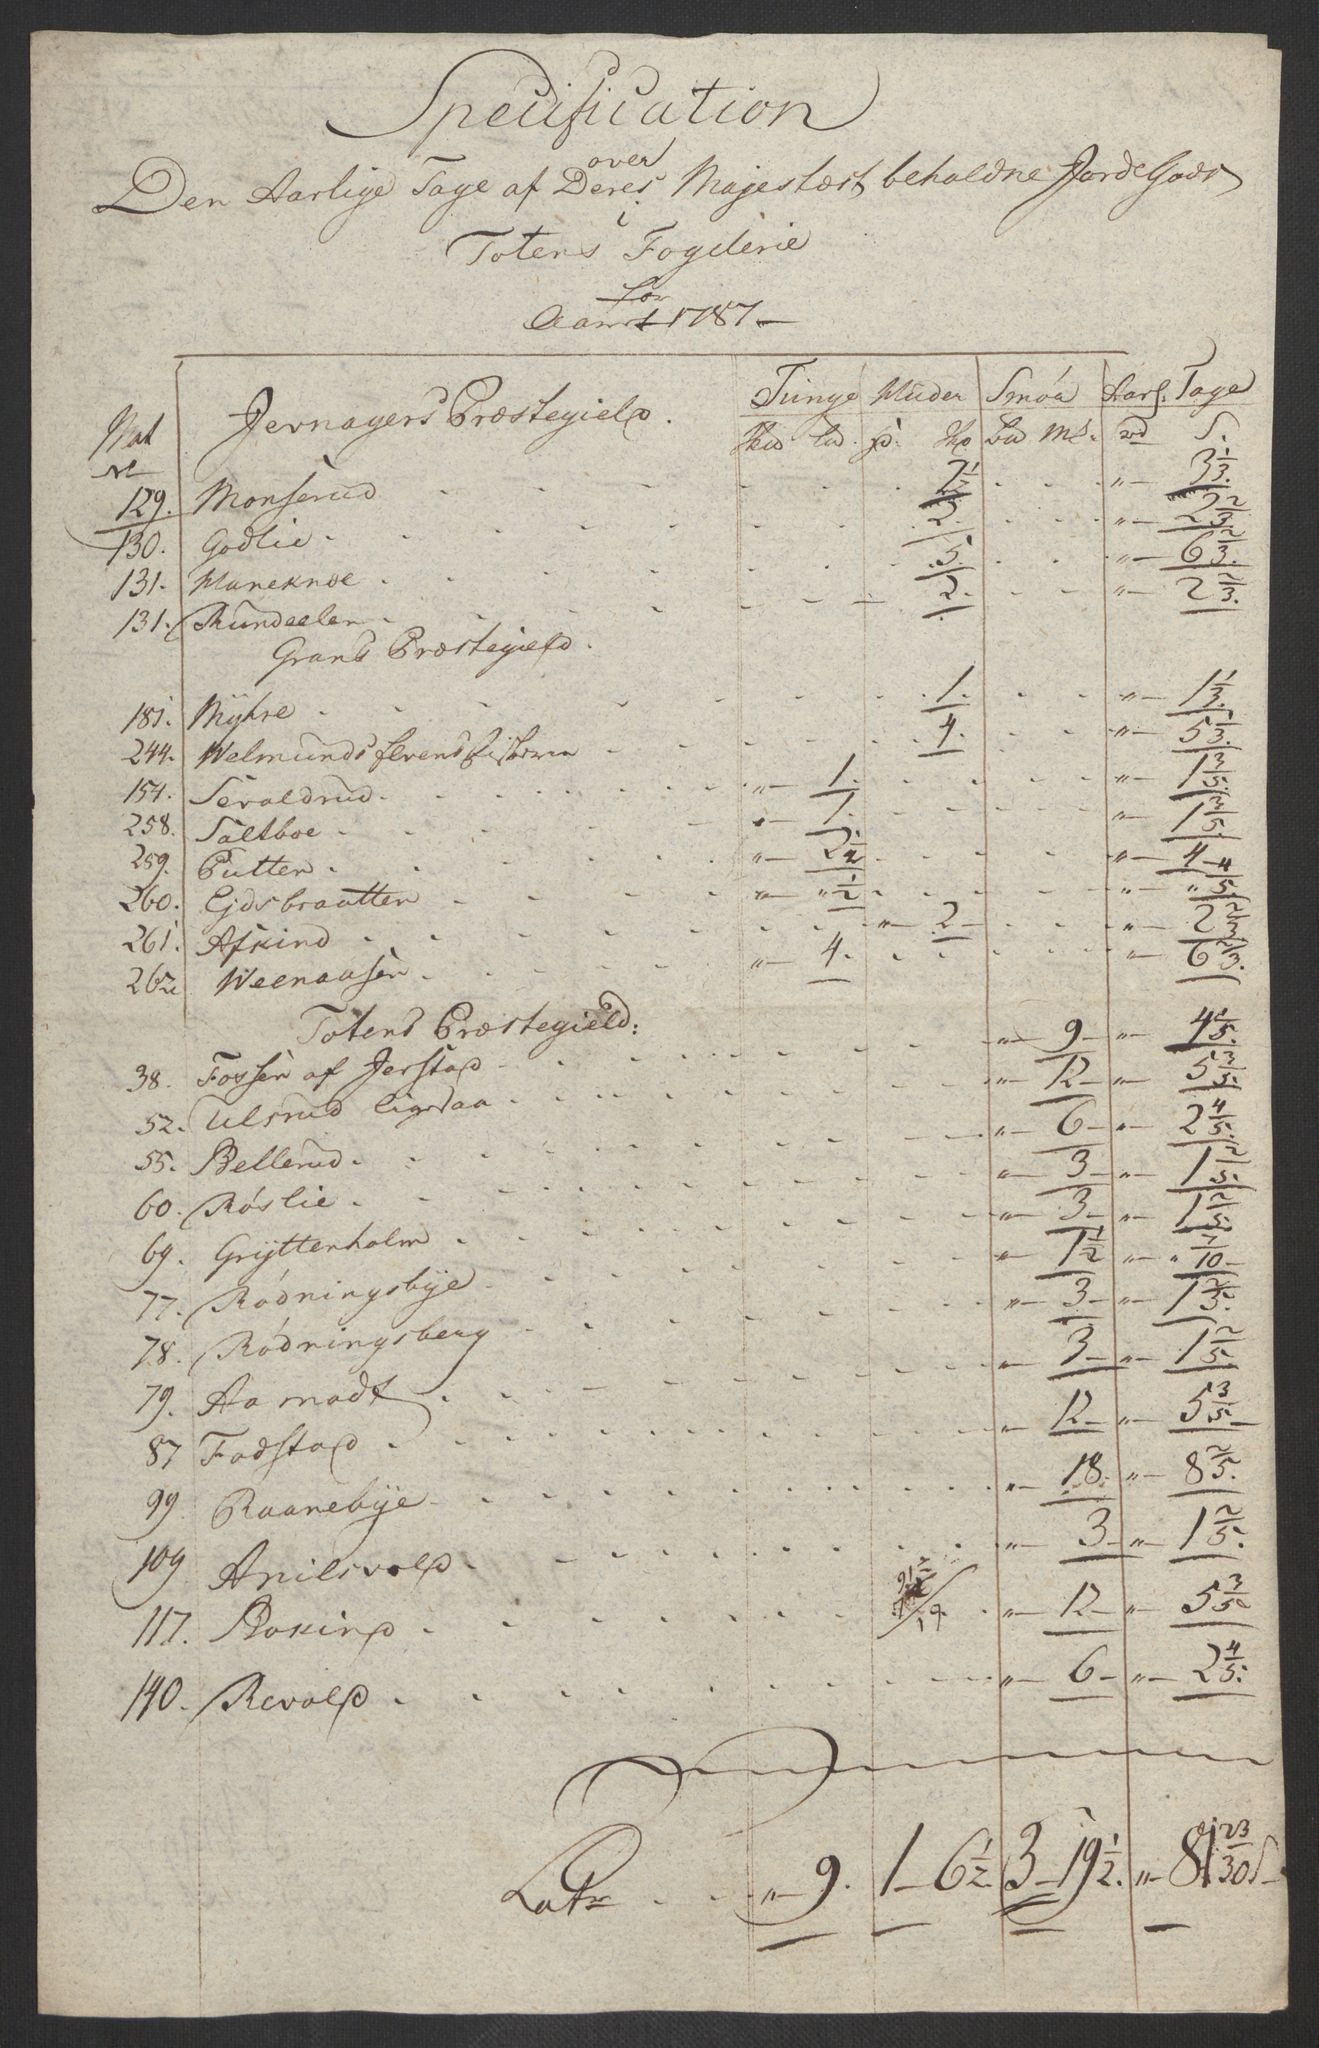 Specification
over
Den Aarlige Tage af Deres Majestæts beholdne JordeGods
i
Totens Fogderie
for
Aaret 1787
Mat No Jevnagers Præstegield. Tunge Huder Smöer Aarl. Tage
Skd Ld. p. Skp Ld Mk. rd S.
129. Monserud 2 1/2 " 3 1/3.
130. Godlie 2. " 2 2/3
131. Maneknoe 5. " 6 2/3.
131. Rundeelen 2. " 2 2/3.
Grans Præstegield.
181. Mÿhre 1. " 1 1/3.
244. Welmunds Elvens fisherie 4. " 5 1/3.
154. Sevaldrud " 1. " 1 3/5.
258. Saltboe " 1. " 1 3/5.
259. Putten " 2 1/2 " 4
260. Ejdsbraatten " " 1/2 " " 4/5.
261. Askind " 2 " 2 2/3
262. Weenaasen " 4. " 6 2/3.
Totens Præstegield:
38. Fossen af Jerstad " 9 " 4 1/5.
52. Ulsrud ligesaa " 12 " 5 3/5.
55. Bellerud " 6 " 2 4/5.
60. Røslie " 3 " 1 2/5.
69. Grÿttenholm " 3 " 1 2/5.
77. Rödningsbÿe " 1 1/2 " " 7/10
78. Rödningsberg " 3 " 1 2/5.
79. Aamodt " 3 " 1 2/5.
87 Fodstad " 12 " 5 3/5.
99. Raanebÿe " 18. " 8 2/5.
109 Anilsvold " 3 " 1 2/5.
117. Bokind " 12 " 5 3/5
140. Revold " 6 " 2 4/5.
Latr " 9. 1 6 1/2. 3 19 1/2. " 81 23/30 S